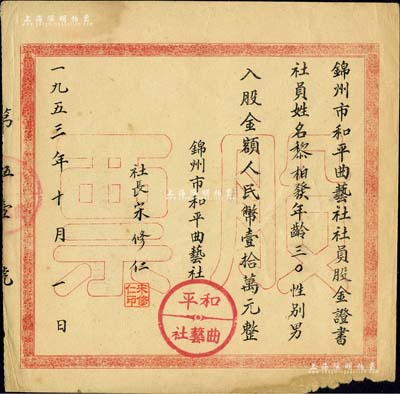 錦州市和平曲藝社社員股金證書
社員姓名黎柏發年齡三〇性別男
入股金額人民幣壹拾萬元整
錦州市和平曲藝社
社長宋修仁
一九五三年十月一日
第伍壹號
股票
和平
曲藝社
宋修仁印
上海陽明拍賣